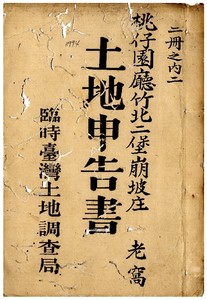 二冊之內二
桃仔園廳竹北二堡崩坡庄
老窩
土地申告書
臨時臺灣土地調查局